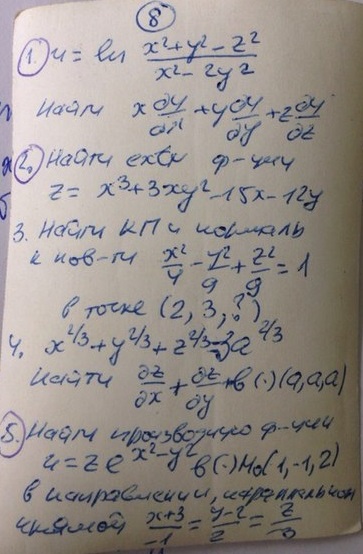 8
1. u = ln (x²+y²-z²)/(x²-2y²)
Найти x ∂u/∂x + y ∂u/∂y + z ∂u/∂z
2. Найти extr ф-ции
z = x³+3xy²-15x-12y
3. Найти КП и нормаль
к пов-ти x²/4 - y²/9 + z²/9 = 1
в точке (2, 3, ?)
4. x^2/3 + y^2/3 + z^2/3 = 3a^2/3
Найти ∂z/∂x + ∂z/∂y в (·) (a,a,a)
5. Найти производную ф-ции
u = z e^x²-y² в (·) M₀(1,-1,2)
в направлении,
прямой (x+3)/-1 = (y-2)/2 = z/